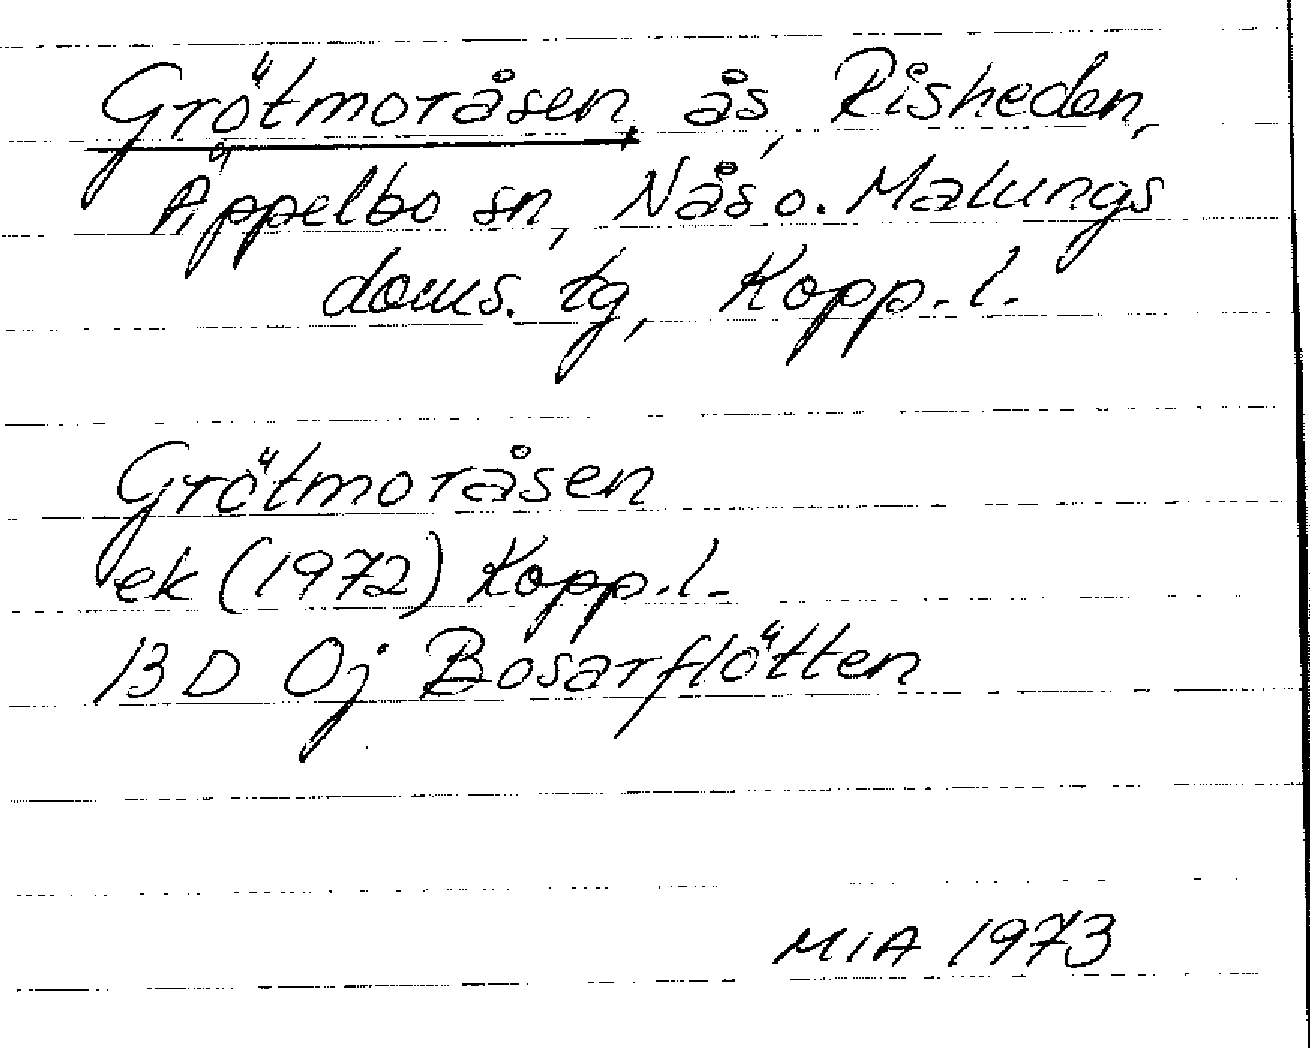 Grötmoråsen, ås, Risheden,
Äppelbo sn, Nås o. Malungs
doms. tg, Kopp. l.
Grötmoråsen
ek (1972) Kopp. l.
13 D 0j Bosarflötten
MIA 1973